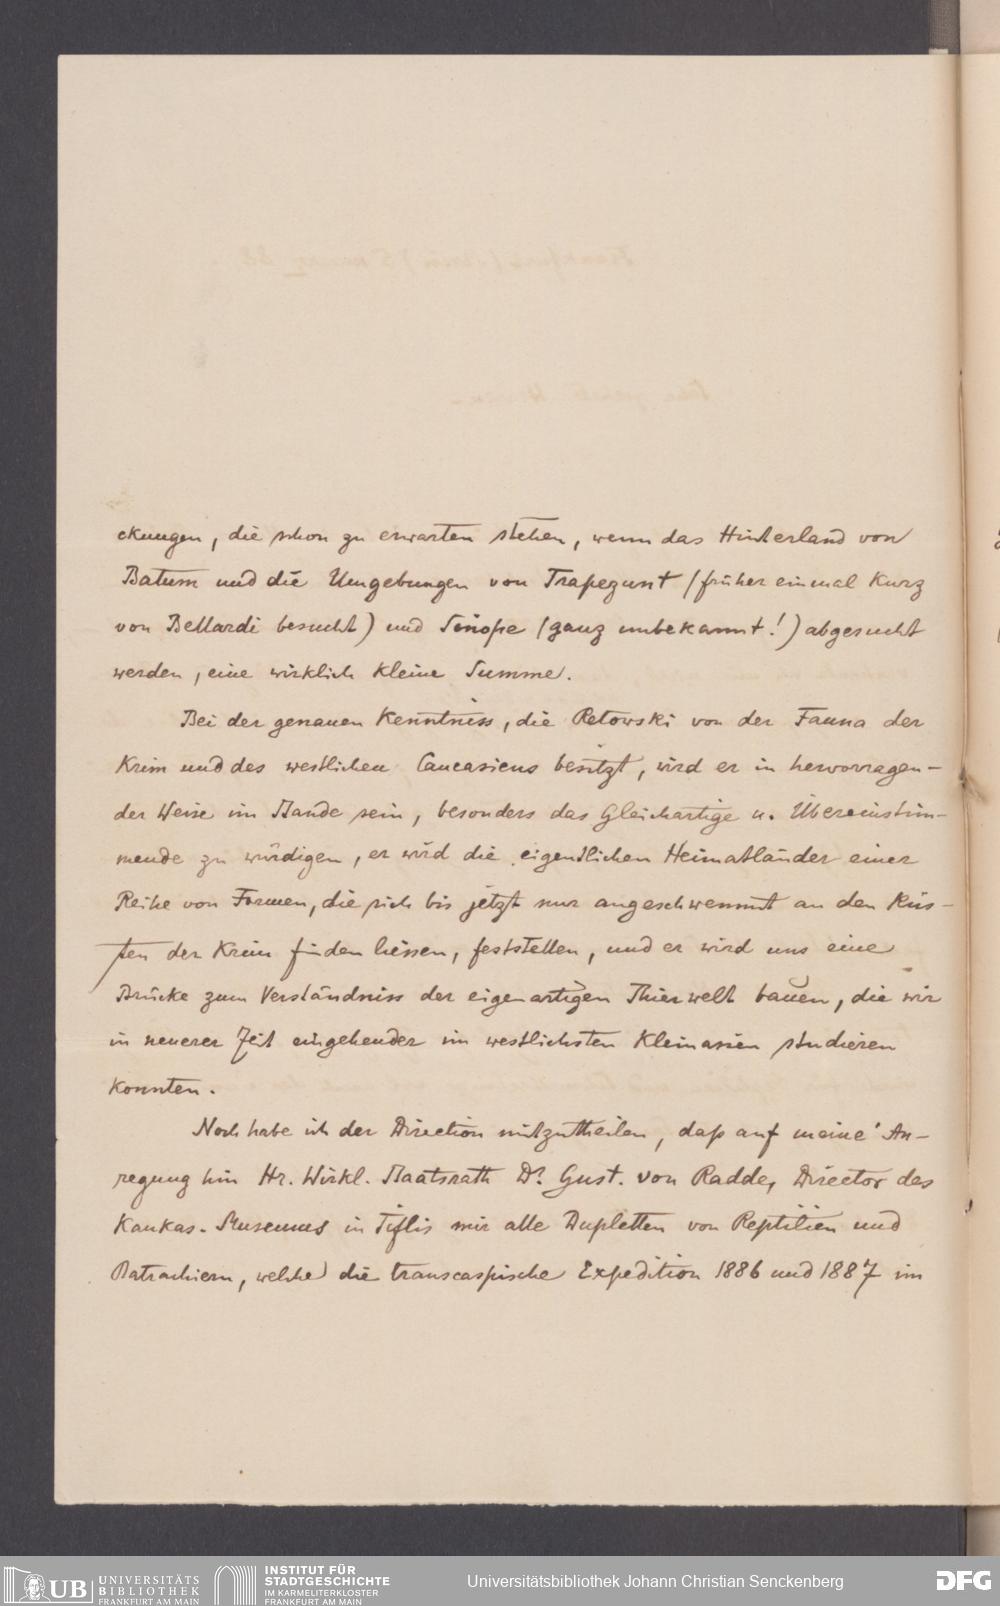 ckungen, die schon zu erwarten stehen, wenn das Hinterland von
Batum und die Umgebungen von Trapezunt (früher einmal kurz
von Bellardi besucht) und Sinope (ganz unbekannt!) abgesucht
werden, eine wirklich kleine Summe.
Bei der genauen Kenntniss, die Retowski von der Fauna der
Krim und des westlichen Caucasiens besitzt, wird er in hervorragen-
der Weise im Stande sein, besonders das Gleichartige u. Übereinstim-
mende zu würdigen, er wird die eigentlichen Heimatländer einer
Reihe von Formen, die sich bis jetzt nur angeschwemmt an den Küs-
ten der Krim finden liessen, feststellen, und er wird uns eine
Brücke zum Verständniss der eigenartigen Thierwelt bauen, die wir
in neuerer Zeit eingehender im westlichsten Kleinasien studieren
konnten.
Noch habe ich der Direction mitzutheilen, daß auf meine An-
regung hin Hr. Wirkl. Staatsrath Dr. Gust. von Radde, Director des
Kaukas. Museums in Tiflis mir alle Dupletten von Reptilien und
Batrachiern, welche die transcaspische Expedition 1886 und 1887 im
UB UNIVERSITÄTS BIBLIOTHEK FRANKFURT AM MAIN
INSTITUT FÜR STADTGESCHICHTE IM KARMELITERKLOSTER FRANKFURT AM MAIN
Universitätsbibliothek Johann Christian Senckenberg
DFG